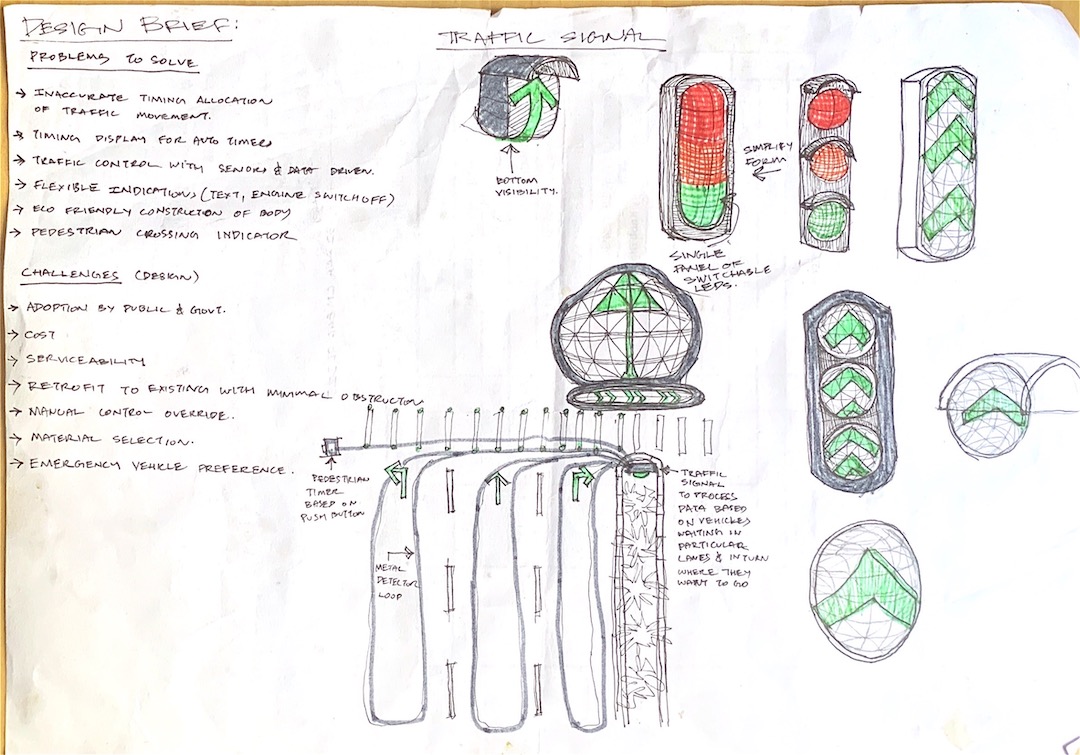 DESIGN BRIEF:
PROBLEMS TO SOLVE
→ INACCURATE TIMING ALLOCATION
OF TRAFFIC MOVEMENT.
→ TIMING DISPLAY FOR AUTO TIMERS
→ TRAFFIC CONTROL WITH SENORS & DATA DRIVEN.
→ FLEXIBLE INDICATIONS (TEXT, ENGINE SWITCHOFF)
→ ECO FRIENDLY CONSTRUCTION OF BODY
→ PEDESTRIAN CROSSING INDICATOR
CHALLENGES (DESIGN)
→ ADOPTION BY PUBLIC & GOVT.
→ COST
→ SERVICEABILITY
→ RETROFIT TO EXISTING WITH MINIMAL OBSTRUCTION
→ MANUAL CONTROL OVERRIDE.
→ MATERIAL SELECTION.
→ EMERGENCY VEHICLE PREFERENCE.
TRAFFIC SIGNAL
BOTTOM
VISIBILITY.
SIMPLIFY
FORM
SINGLE
PANEL OF
SWITCHABLE
LEDS.
PEDESTRIAN
TIMER
BASED ON
PUSH BUTTON
METAL
DETECTOR
LOOP
TRAFFIC
SIGNAL
TO PROCESS
DATA BASED
ON VEHICLES
WAITING IN
PARTICULAR
LANES & IN TURN
WHERE THEY
WANT TO GO